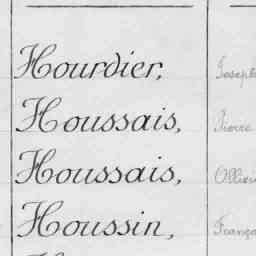 Hourdier, Joseph
Houssais, Pierre
Houssais, Ollivi
Houssin, França